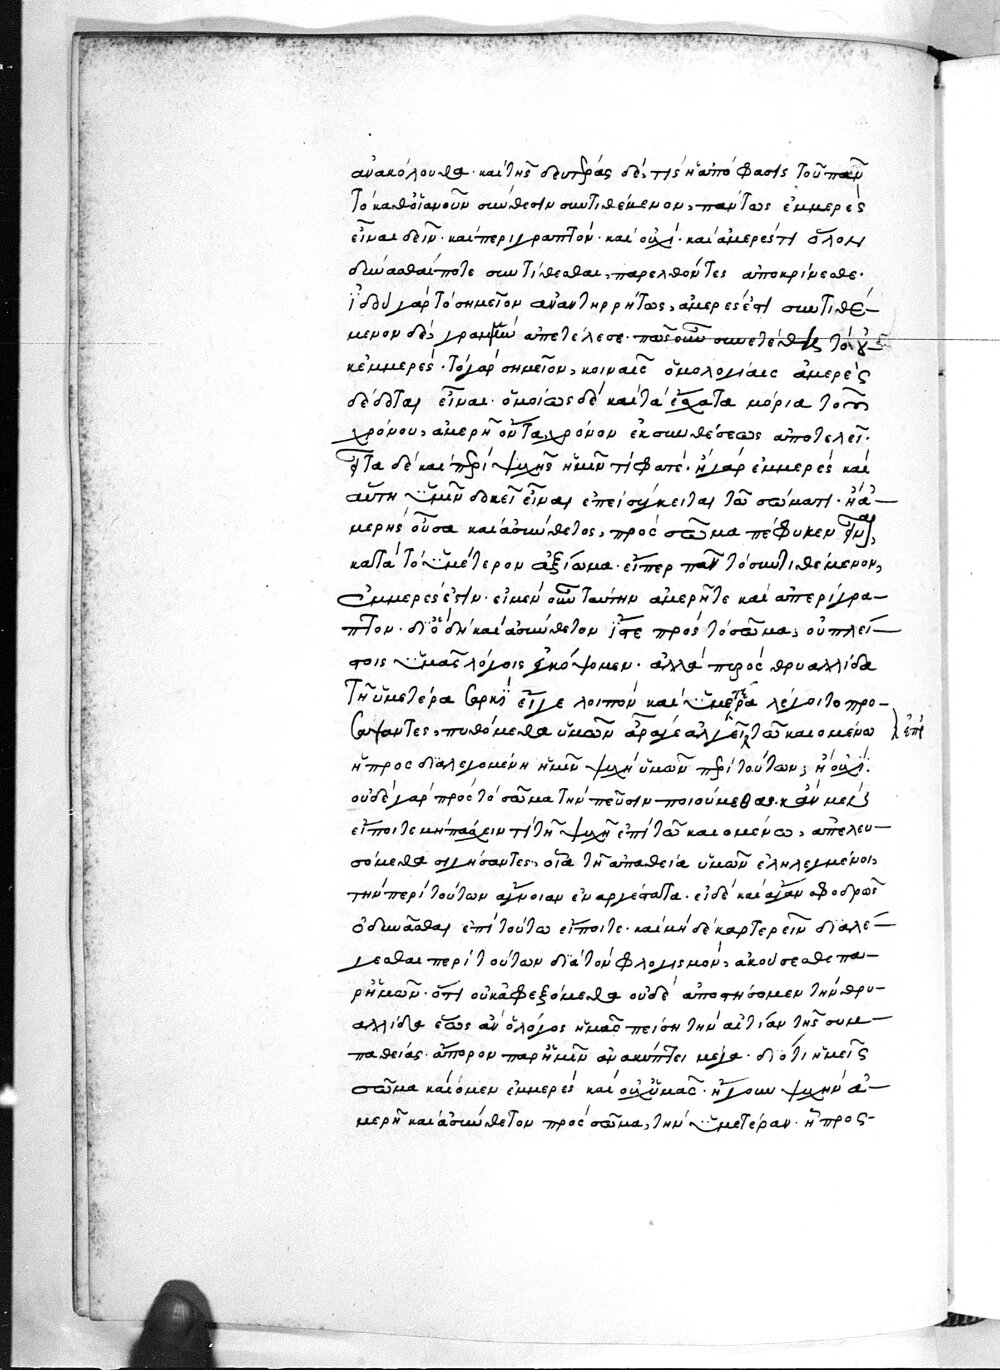 ἀνακόλουθα· καὶ τῆς δευτέρας δὲ, τίς ἡ ἀπόφασις τοῦ πᾶν
τὸ καθ' οἱανοῦν σύνθεσιν συντιθέμενον, πάντως ἐμμερὲς
εἶναι δεῖν· καὶ περιγραπτόν· καὶ οὐχὶ· καὶ ἀμερές τι ὅλον
δύνασθαί ποτε συντίθεσθαι, παρελθόντες ἀποκρίνεσθε·
ἰδοὺ γὰρ τὸ σημεῖον ἀναντιρρήτως, ἀμερές ἐστι συντιθέ-
μενον δὲ, γραμμὴν ἀπετέλεσε· πῶς οὖν συνετέθη τὸ
κἐμμερές· τὸ γὰρ σημεῖον, κοιναῖς ὁμολογίαις ἀμερὲς
δέδοται εἶναι· ὁμοίως δὲ καὶ τὰ ἔσχατα μόρια τοῦ
χρόνου, ἀμερῆ ὄντα, χρόνον ἐκ συνθέσεως ἀποτελεῖ·
εἶτα δὲ καὶ περὶ ψυχῆς ἡμῖν τί φατέ· ἢ γὰρ ἐμμερὲς καὶ
αὕτη ὑμῖν δοκεῖ εἶναι ἐπεὶ σύγκειται τῷ σώματι· ἢ ἀ-
μερὴς οὖσα καὶ ἀσύνθετος, πρὸς σῶμα πέφυκεν
κατὰ τὸ ὑμέτερον ἀξίωμα· εἴπερ πᾶν τὸ συντιθέμενον,
ἐμμερές ἐστιν· εἰ μὲν οὖν ταύτην ἀμερῆ τε καὶ ἀπερίγρα-
πτον· διὸ δὴ καὶ ἀσύνθετον ἴστε πρὸς τὸ σῶμα, οὐ πλεί-
στοις ὑμᾶς λόγοις ἐκκόψομεν· ἀλλὰ πυρὸς θρυαλλίδα
τῇ ὑμετέρᾳ σαρκὶ εἴγε λοιπὸν καὶ ὑμετέρα λέγοιτο προ-
σάψαντες, πυθόμεθα ὑμῶν ἆρά γε ἀλγεῖ τῷ καιομένῳ ἐπὶ
ἡ προσδιαλεγομένη ἡμῖν ψυχὴ ὑμῶν περὶ τούτων, ἢ οὐχί·
οὐδὲ γὰρ πρὸς τὸ σῶμα τὴν πεῦσιν ποιούμεθα· κἂν μὲν
εἴποιτε μὴ πάσχειν τι τὴν ψυχὴν ἐπὶ τῷ καιομένῳ, ἀπελευ-
σόμεθα σιγήσαντες, οἷα τῇ ἀπαθείᾳ ὑμῶν ἐληλεγμένοι,
τὴν περὶ τούτων ἄγνοιαν ἐναργέστατα· εἰ δὲ καὶ ἄγαν σφοδρῶς
ὀδυνᾶσθαι ἐπὶ τούτῳ εἴποιτε· καὶ μηδὲ καρτερεῖν διαλέ-
γεσθαι περὶ τούτων διὰ τὸν φλογισμὸν, ἀκούσεσθε πα-
ρ' ἡμῶν· ὅτι οὐκ ἀφεξόμεθα οὐδὲ ἀποστήσομεν τὴν θρυ-
αλλίδα ἕως ἂν ὁ λόγος ἡμᾶς πείσῃ τὴν αἰτίαν τῆς συμ-
παθείας· ἄπορον παρ' ἡμῖν ἀνακύπτει μέγα· διότι ἡμεῖς
σῶμα καίομεν ἐμμερὲς καὶ οὐχ ὑμᾶς· ἤγουν ψυχὴν ἀ-
μερῆ καὶ ἀσύνθετον πρὸς σῶμα, τὴν ὑμετέραν· ἢ προς-